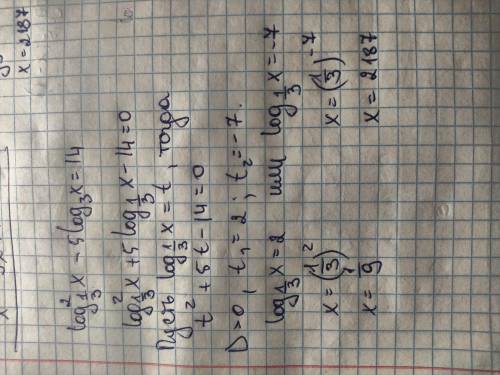 x = 2187
log²_{1/3} x - 5log_3 x = 14
log²_{1/3} x + 5log_{1/3} x - 14 = 0
Пусть log_{1/3} x = t, тогда
t² + 5t - 14 = 0
D > 0, t₁ = 2; t₂ = -7.
log_{1/3} x = 2 или log_{1/3} x = -7
x = (1/3)² x = (1/3)^{-7}
x = 1/9 x = 2187